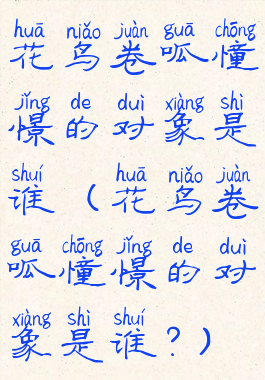 huā niǎo juàn guā chōng
花鸟卷呱憧
jǐng de duì xiàng shì
憬的对象是
shuí huā niǎo juàn
谁（花鸟卷
guā chōng jǐng de duì
呱憧憬的对
xiàng shì shuí
象是谁？）